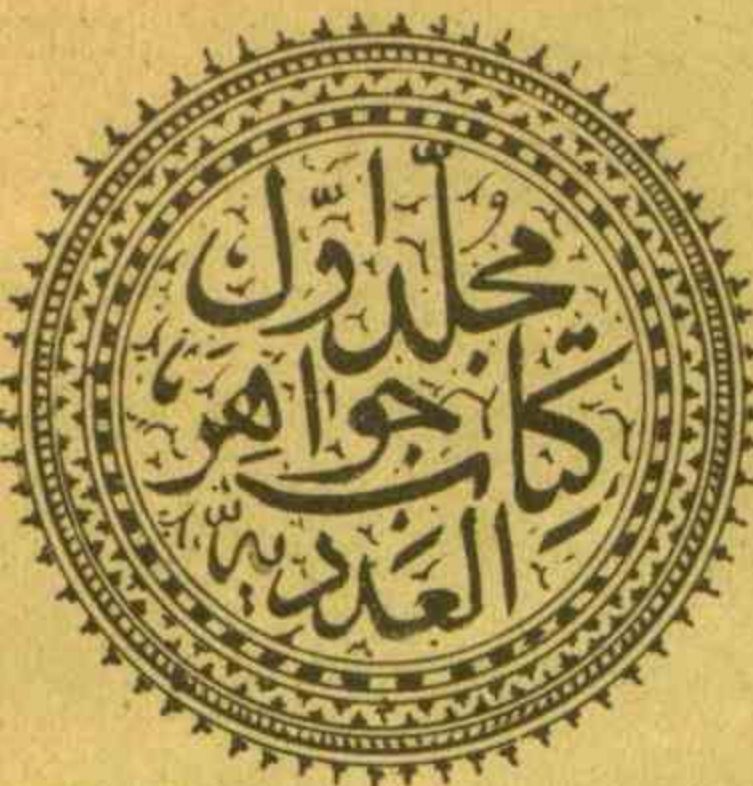 مجلّد اوّل
كِتاب جواهِر
العَدَديه